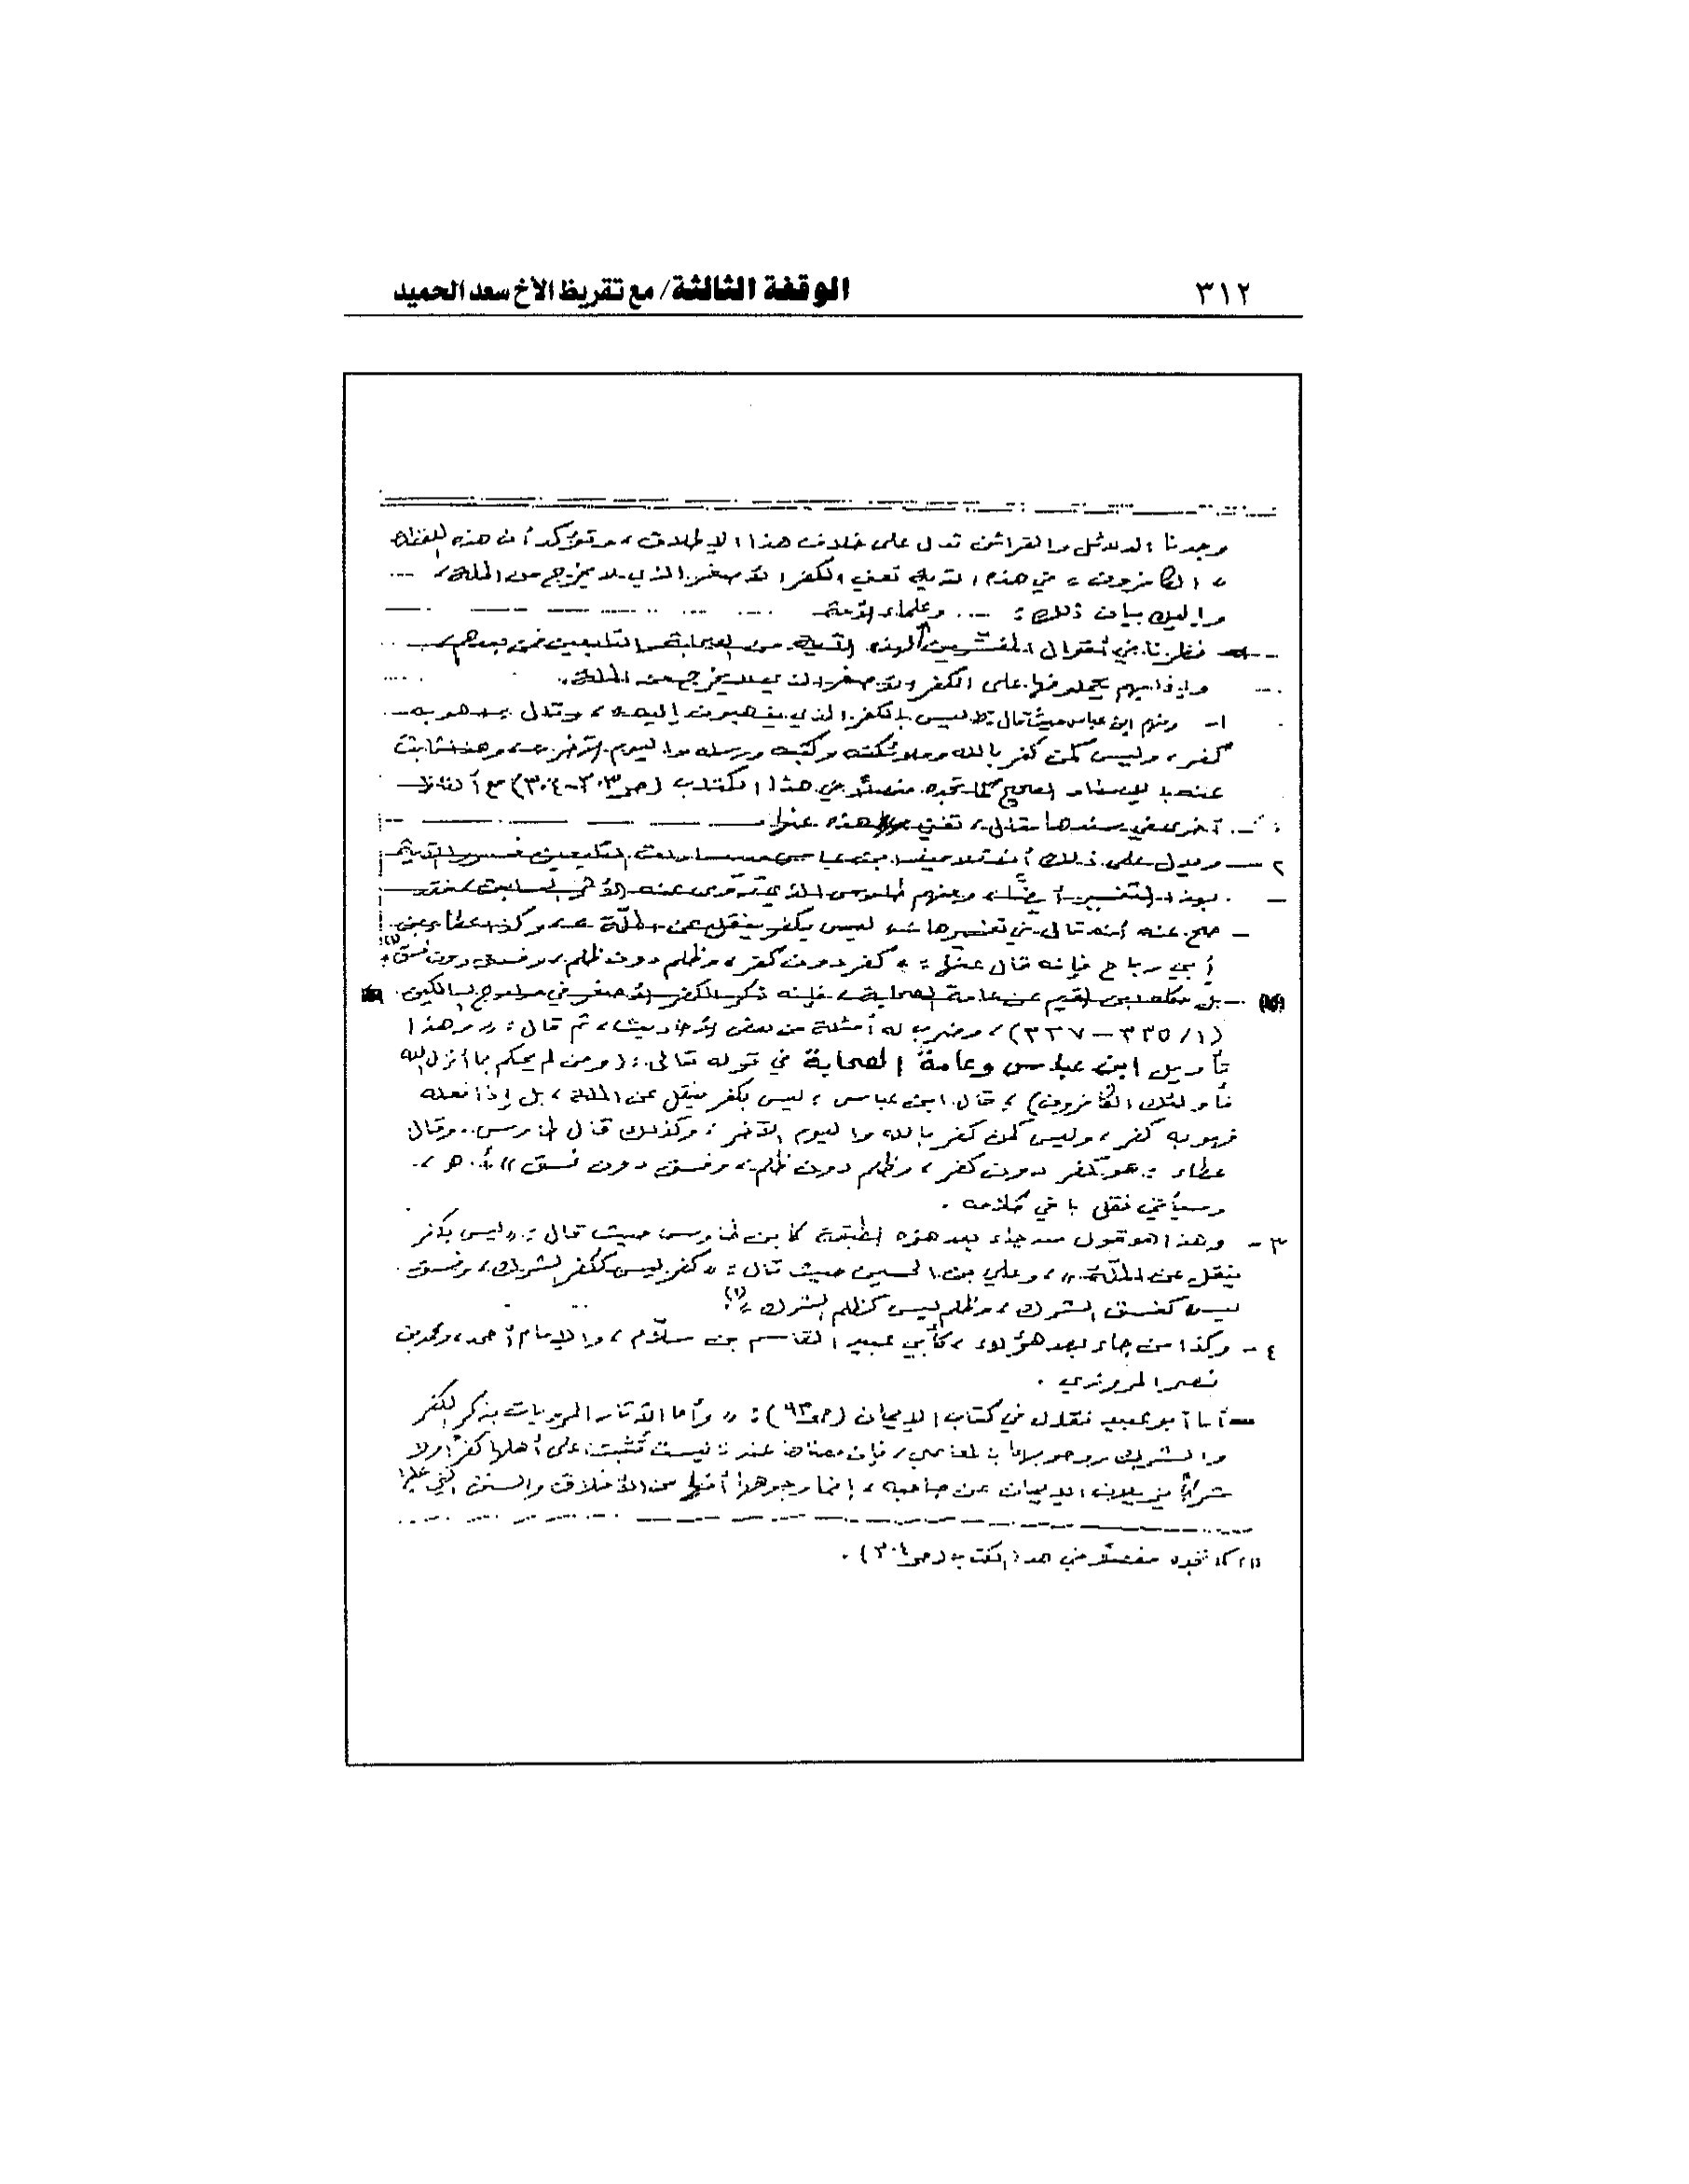 ٣١٢
الوقفة الثالثة/ مع تقريظ الأخ سعد الحميد
وجدنا الدلائل والقرائن تدل على خلاف هذا الإطلاق، وتؤكد أن هذه اللفظة
« الكافرون » في هذه الآية تعني الكفر الأصغر الذي لا يخرج من الملة،
وإليك بيان ذلك : وعلماء الأمة
- فنظرنا في أقوال المفسرين لهذه الآية من الصحابة والتابعين فمن بعدهم
وإذا هم يحملونها على الكفر الأصغر الذي لا يخرج من الملة.
١- ومنهم ابن عباس حيث قال : ليس بالكفر الذي يذهبون إليه ، وقال : هو به
كفر، وليس كمن كفر بالله وملائكته وكتبه ورسله واليوم الآخر، وهذا ثابت
عنه بالإسناد الصحيح كما تجده مفصلاً في هذا الكتاب (ص٣٠٣-٣٠٤) مع ألفاظ
أخرى في سندها مقال، تغني هذه عنها.
٢ - ويدل على ذلك أن تلاميذ ابن عباس من سادات التابعين فسروا الآية
بهذا التفسير أيضاً، ومنهم طاوس الذي روى عنه الأثر السابق، فقد
صح عنه أنه قال في تفسيرها : ليس بكفر ينقل عن الملة ، وكذا عطاء بن
أبي رباح فإنه قال عنها : « كفر دون كفر، وظلم دون ظلم، وفسق دون فسق »(١)
- بل حكاه ابن القيم عن عامة الصحابة، فإنه ذكر الكفر الأصغر في مدارج السالكين
(١/ ٣٣٥ - ٣٣٧) ، وضرب له أمثلة من بعض الأحاديث، ثم قال : « وهذا
تأويل ابن عباس وعامة الصحابة في قوله تعالى : (ومن لم يحكم بما أنزل الله
فأولئك الكافرون) ؛ قال ابن عباس : ليس بكفر ينقل عن الملة ، بل إذا فعله
فهو به كفر، وليس كمن كفر بالله واليوم الآخر ، وكذلك قال طاوس. وقال
عطاء : هو كفر دون كفر ، وظلم دون ظلم ، وفسق دون فسق » أ. هـ ،
وسيأتي نقل باقي كلامه .
٣ - وهذا هو قول من جاء بعد هذه الطبقة كابن طاوس حيث قال : « ليس بكفر
ينقل عن الملة » ، وعلي بن الحسين حيث قال : « كفر ليس ككفر الشرك، وفسق
ليس كفسق الشرك ، وظلم ليس كظلم الشرك »(١).
٤ - وكذا من جاء بعد هؤلاء ، كأبي عبيد القاسم بن سلام ، والإمام أحمد، ومحمد بن
نصر المروزي .
- أما أبو عبيد فقال في كتاب الإيمان (ص٩٣) : « وأما الآثار المرويات بذكر الكفر
والشرك ووجوبهما بالمعاصي، فإن معناها عندنا ليست تُثبت على أهلها كفراً ولا
شركاً يزيلان الإيمان عن صاحبه ، إنما وجوهها أنها من الأخلاق والسنن التي عليها
(١) كما تجده مفصلاً في هذا الكتاب (ص٣٠٤) .